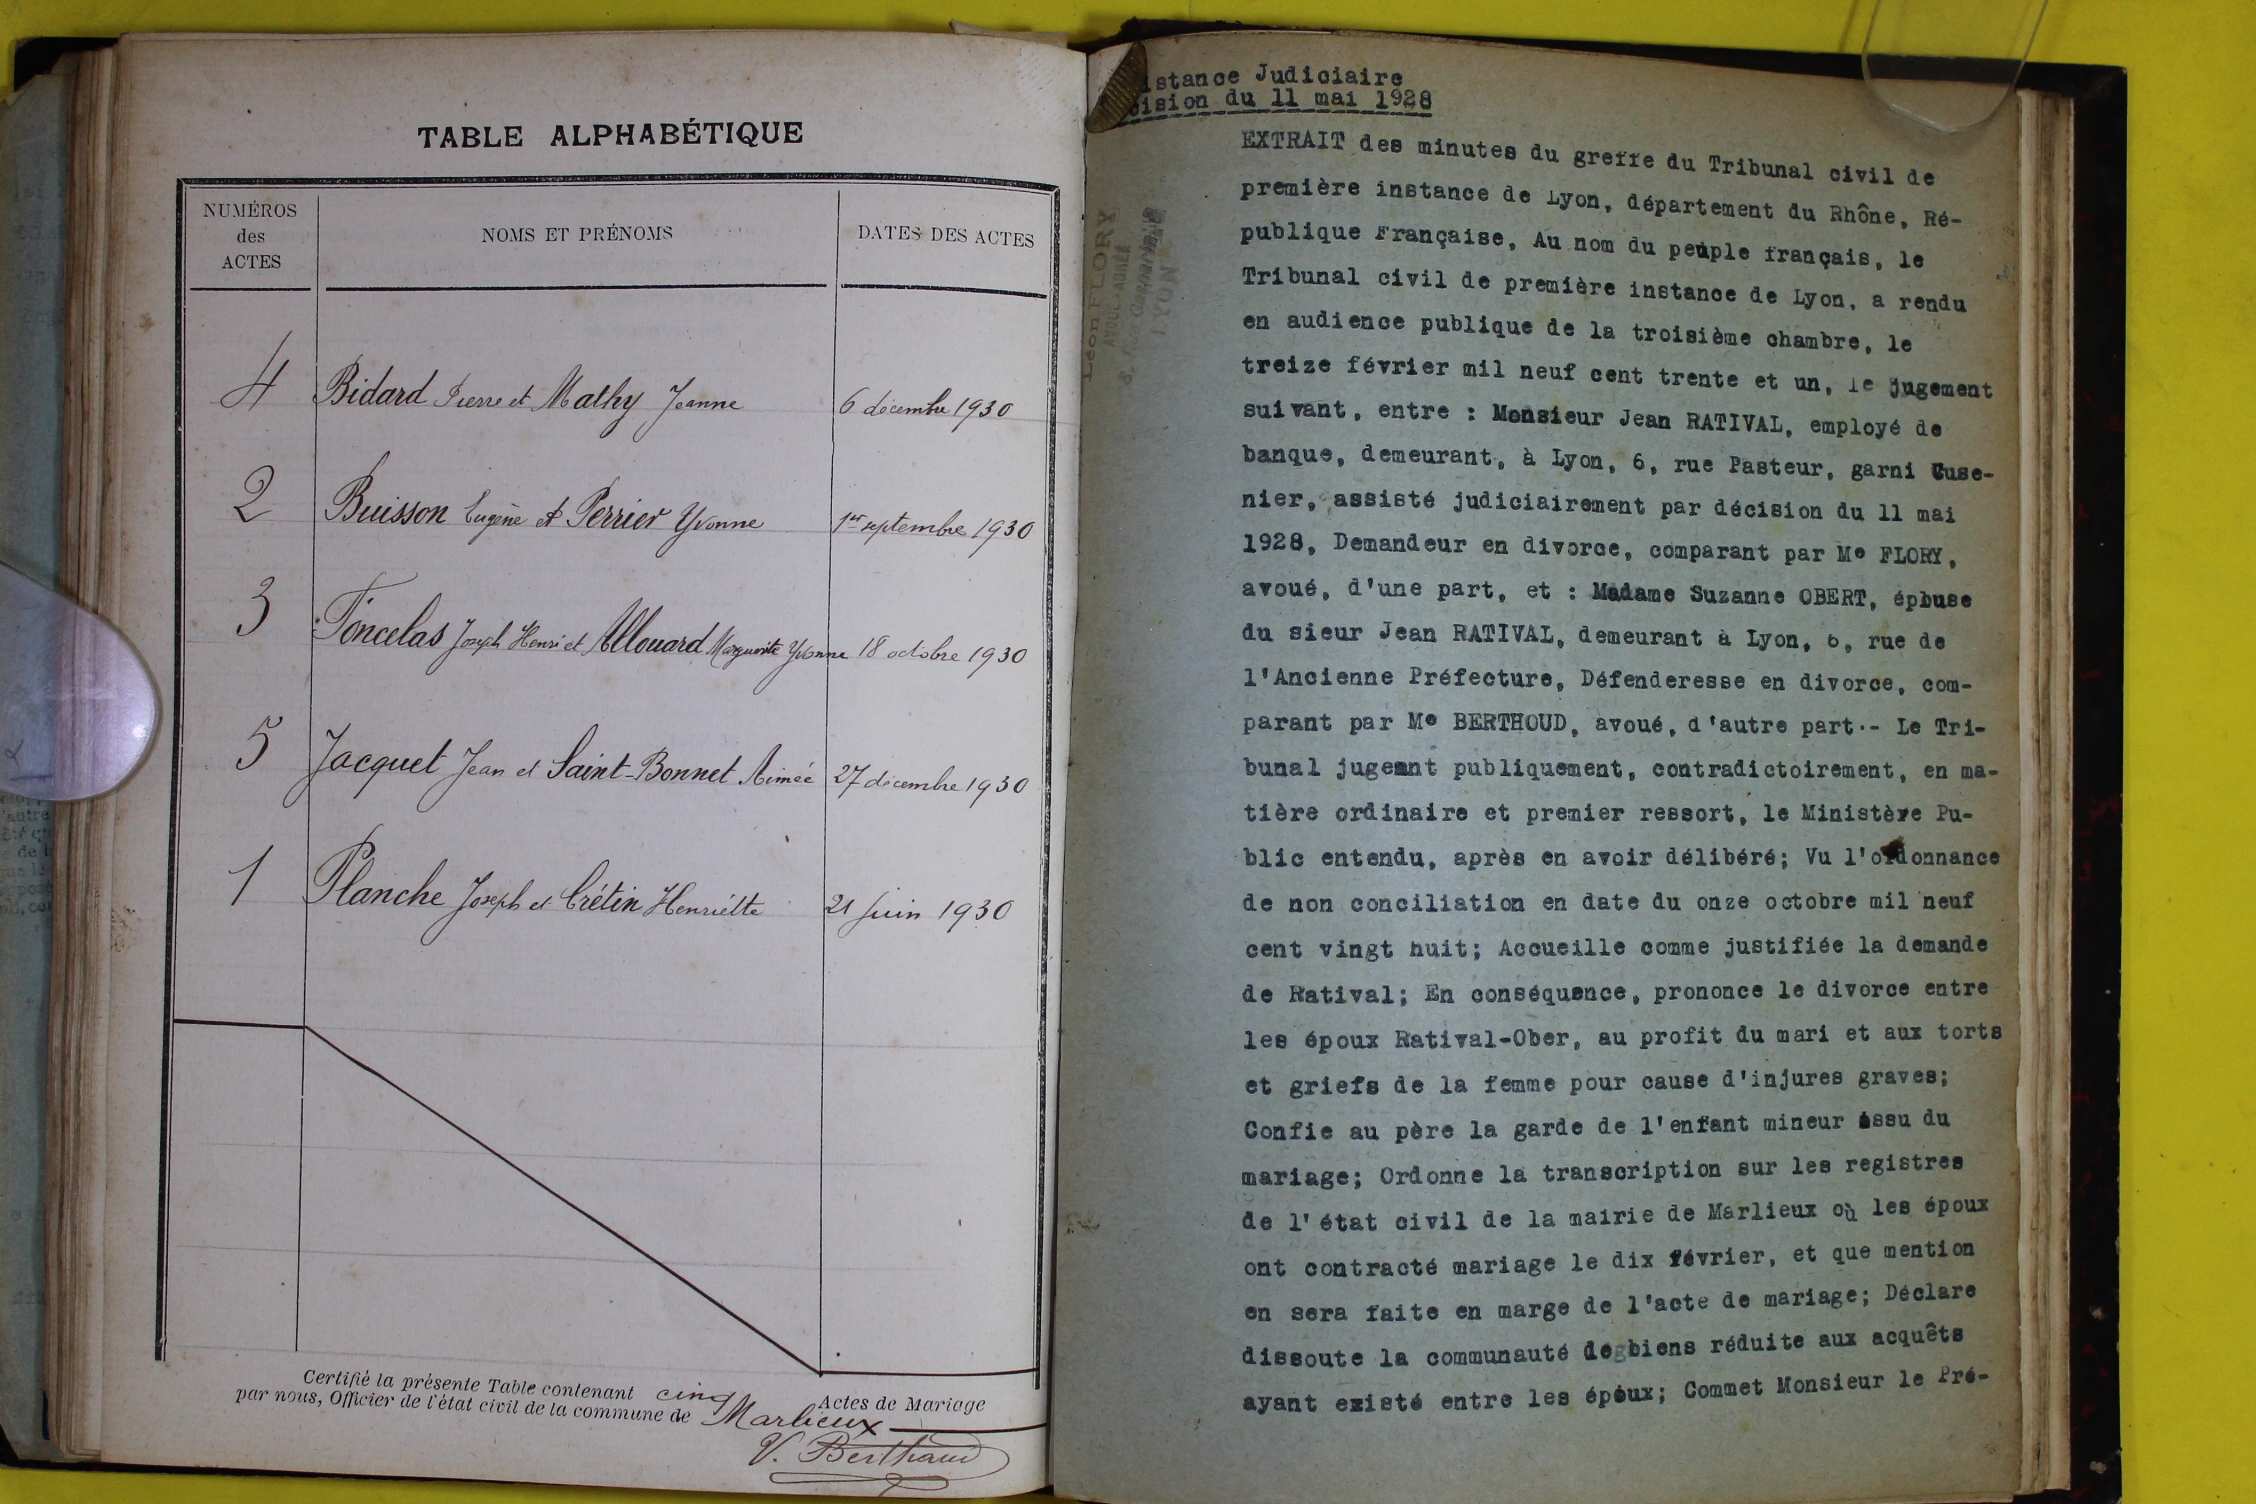 TABLE ALPHABÉTIQUE
NUMÉROS
des
ACTES
NOMS ET PRÉNOMS
DATES DES ACTES
4 Bidard Pierre et Mathy Jeanne 6 décembre 1930
2 Buisson Eugène et Perrier Yvonne 1er septembre 1930
3 Foncelas Joseph Henri et Allouard Marguerite Yvonne 18 octobre 1930
5 Jacquet Jean et Saint-Bonnet Aimée 27 décembre 1930
1 Planche Joseph et Crétin Henriette 21 juin 1930
Certifié la présente Table contenant cinq Actes de Mariage
par nous, Officier de l'état civil de la commune de Marlieux
V. Berthaud
istance Judiciaire
cision du 11 mai 1928
Léon FLORY
AVOUÉ-AGRÉÉ
LYON
EXTRAIT des minutes du greffe du Tribunal civil de
première instance de Lyon, département du Rhône, Ré-
publique Française, Au nom du peuple français, le
Tribunal civil de première instance de Lyon, a rendu
en audience publique de la troisième chambre, le
treize février mil neuf cent trente et un, le jugement
suivant, entre : Monsieur Jean RATIVAL, employé de
banque, demeurant, à Lyon, 6, rue Pasteur, garni Cuse-
nier, assisté judiciairement par décision du 11 mai
1928, Demandeur en divorce, comparant par Me FLORY,
avoué, d'une part, et : Madame Suzanne OBERT, épouse
du sieur Jean RATIVAL, demeurant à Lyon, 6, rue de
l'Ancienne Préfecture, Défenderesse en divorce, com-
parant par Me BERTHOUD, avoué, d'autre part.- Le Tri-
bunal jugeant publiquement, contradictoirement, en ma-
tière ordinaire et premier ressort, le Ministère Pu-
blic entendu, après en avoir délibéré; Vu l'ordonnance
de non conciliation en date du onze octobre mil neuf
cent vingt huit; Accueille comme justifiée la demande
de Ratival; En conséquence, prononce le divorce entre
les époux Ratival-Ober, au profit du mari et aux torts
et griefs de la femme pour cause d'injures graves;
Confie au père la garde de l'enfant mineur issu du
mariage; Ordonne la transcription sur les registres
de l'état civil de la mairie de Marlieux où les époux
ont contracté mariage le dix février, et que mention
en sera faite en marge de l'acte de mariage; Déclare
dissoute la communauté de biens réduite aux acquêts
ayant existé entre les époux; Commet Monsieur le Pré-